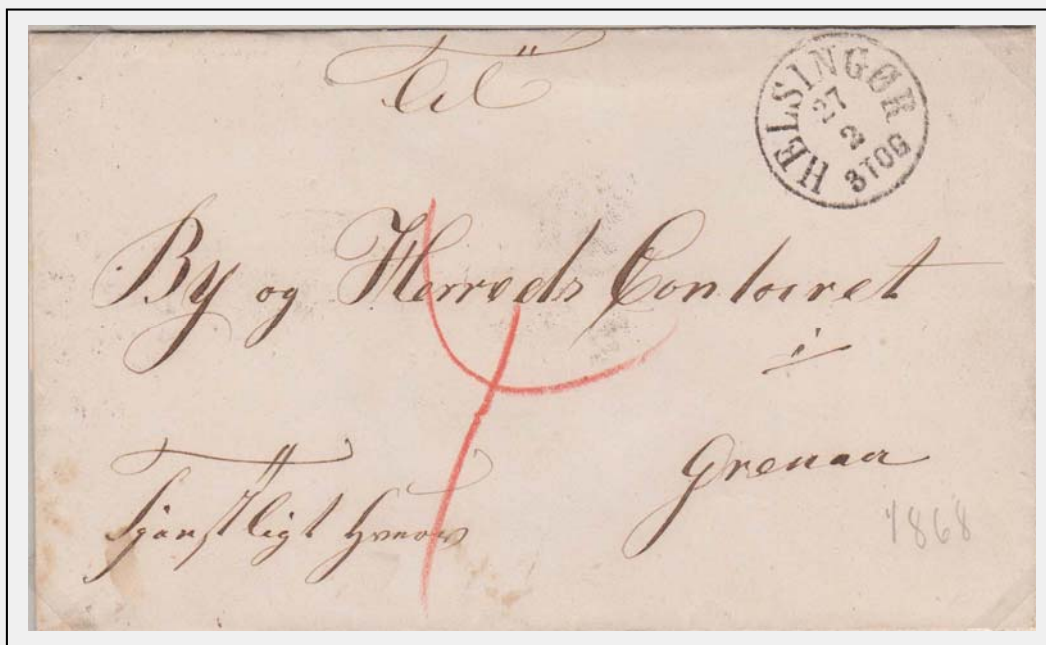 Til
HELSINGØR
27
2
3TOG
By og Herreds Contoiret
i
Grenaa
4
1868